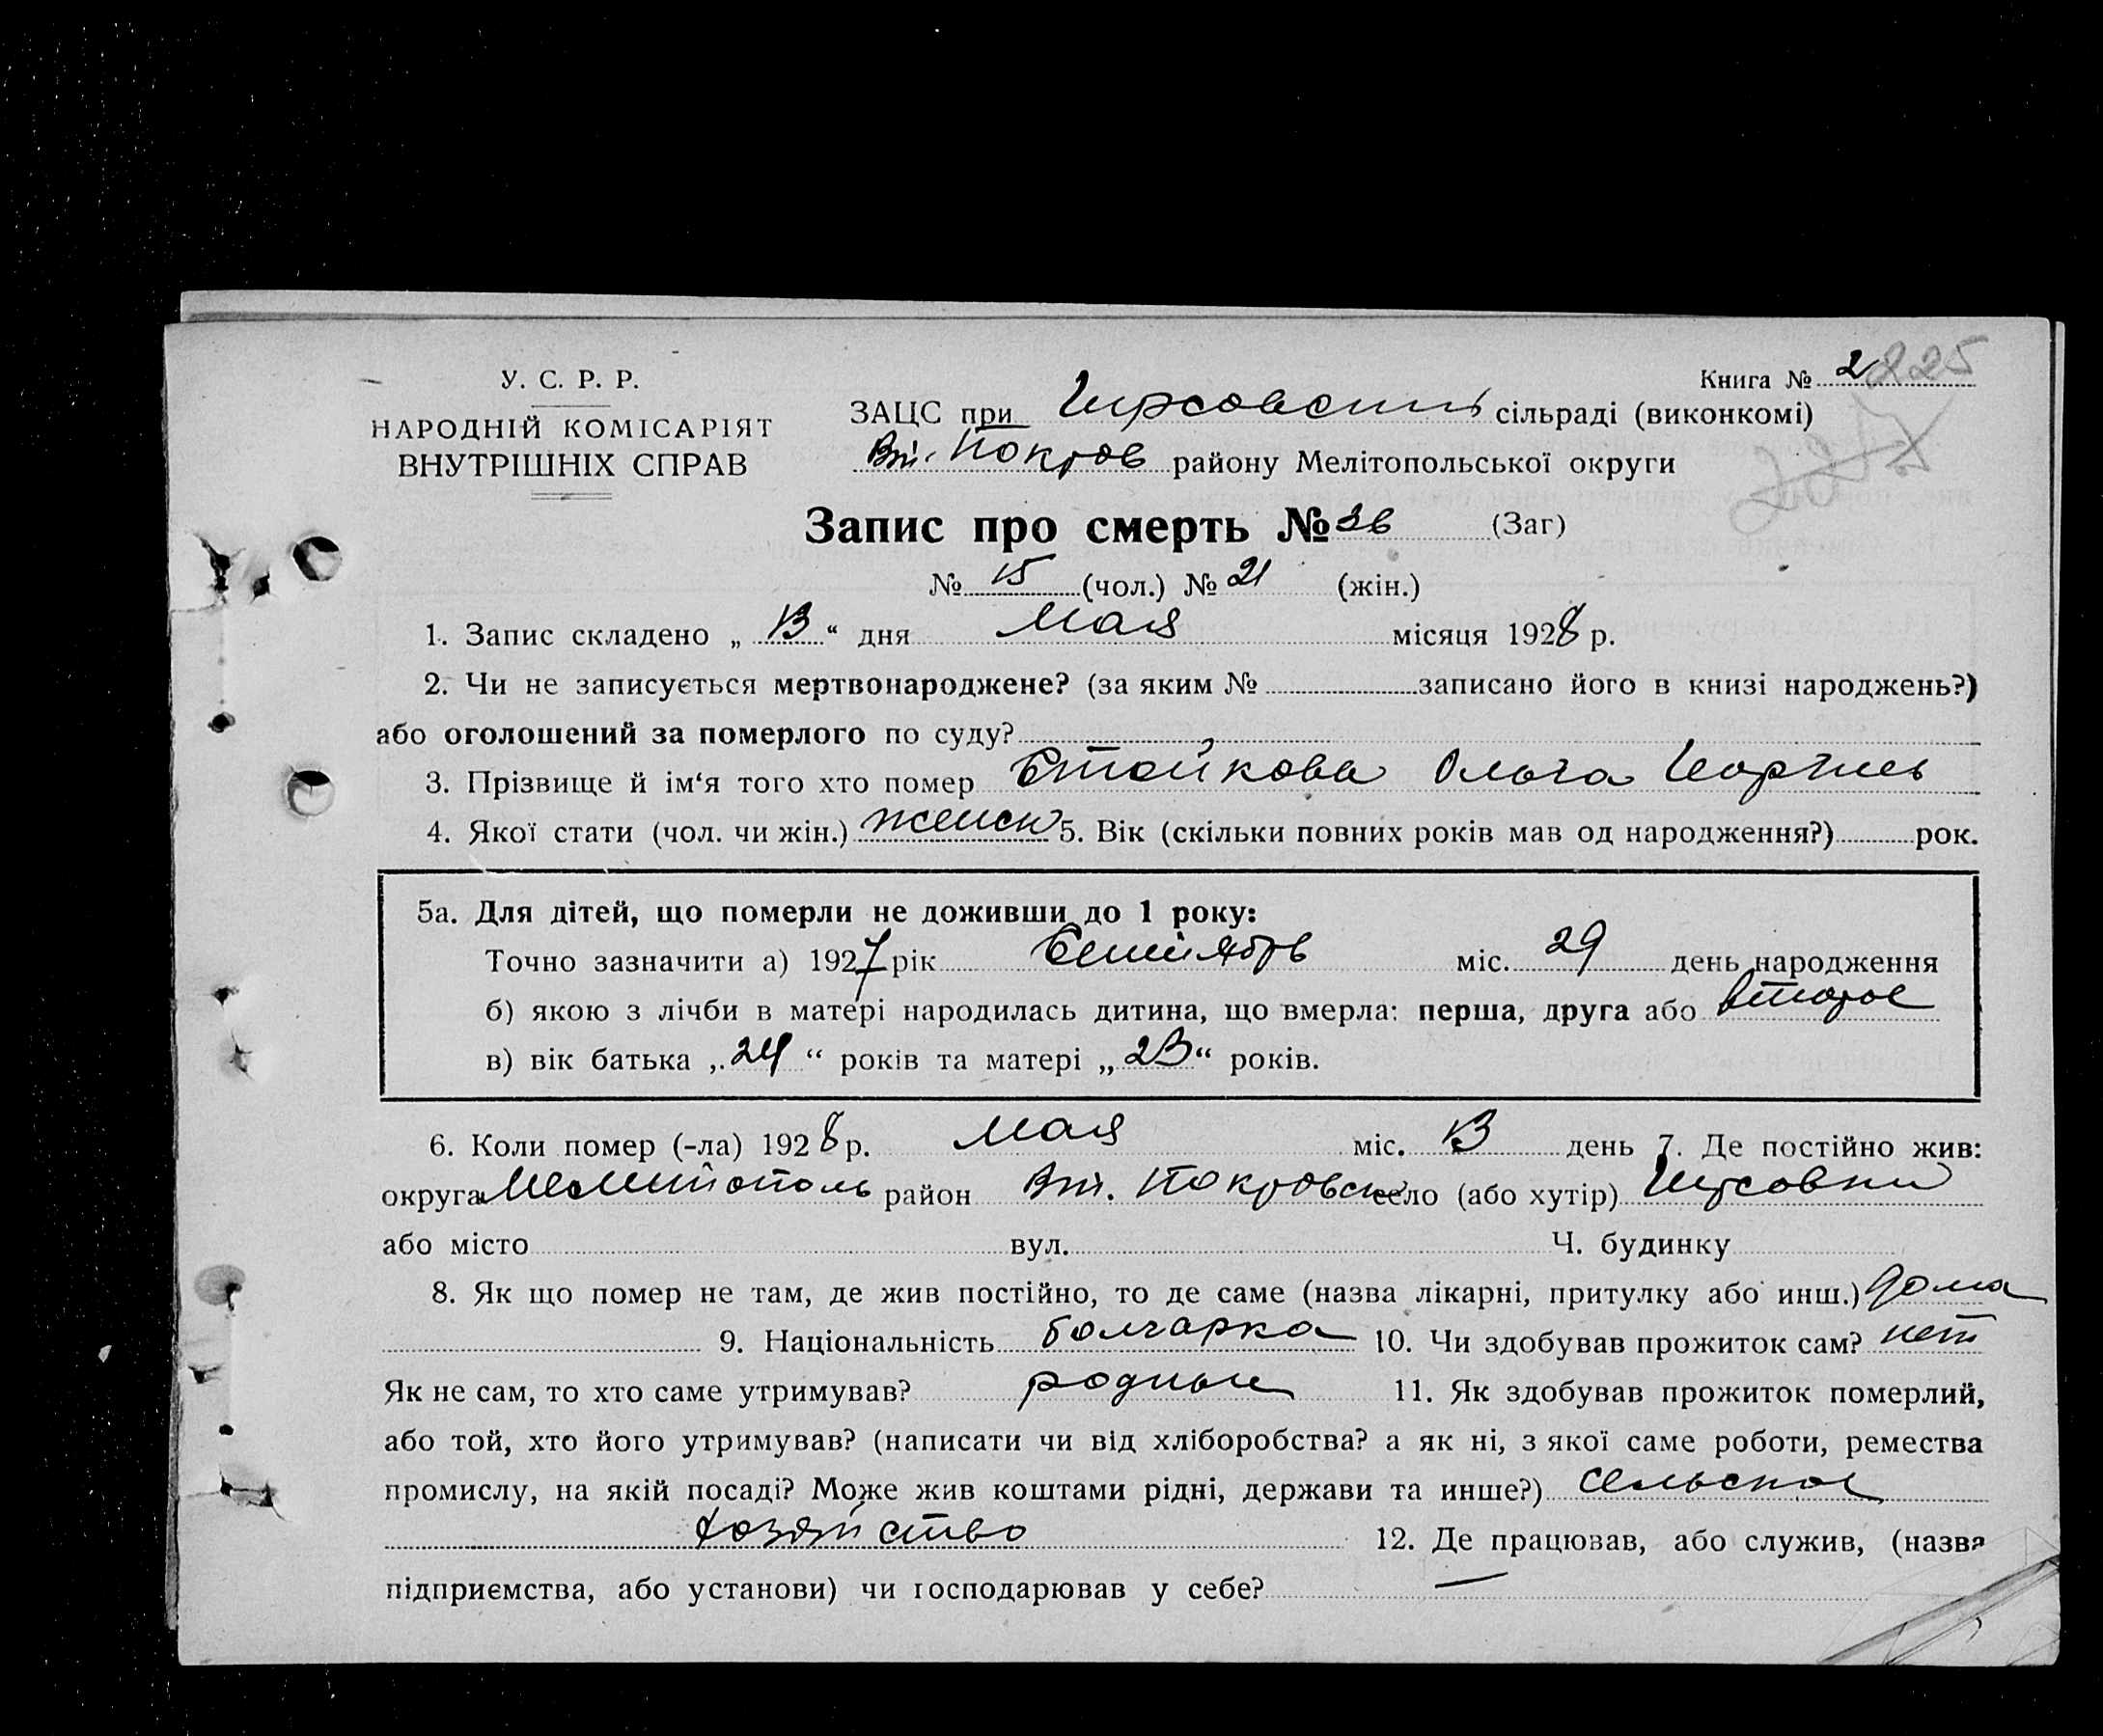 У. С. Р. Р.
НАРОДНІЙ КОМІСАРІЯТ
ВНУТРІШНІХ СПРАВ
Книга № 2 225
ЗАЦС при Гирсовским сільраді (виконкомі)
Вт. Покров району Мелітопольської округи
Запис про смерть № 36 (Заг)
№ 15 (чол.) № 21 (жін.)
1. Запис складено „ 13 “ дня Мая місяця 1928 р.
2. Чи не записується мертвонароджене? (за яким № записано його в книзі народжень?)
або оголошений за померлого по суду?
3. Прізвище й ім‘я того хто помер Стойкова Ольга
4. Якої стати (чол. чи жін.) женск 5. Вік (скільки повних років мав од народження?) рок.
5а. Для дітей, що померли не доживши до 1 року:
Точно зазначити а) 1927 рік Сентябрь міс. 29 день народження
б) якою з лічби в матері народилась дитина, що вмерла: перша, друга або второе
в) вік батька „ 24 “ років та матері „ 23 “ років.
6. Коли помер (-ла) 1928 р. Мая міс. 13 день 7. Де постійно жив:
округа Мелитополь район Вт. Покровск село (або хутір) Гирсовки
або місто вул. Ч. будинку
8. Як що помер не там, де жив постійно, то де саме (назва лікарні, притулку або инш.) дома
9. Національність болгарка 10. Чи здобував прожиток сам? нет
Як не сам, то хто саме утримував? родные 11. Як здобував прожиток померлий,
або той, хто його утримував? (написати чи від хліборобства? а як ні, з якої саме роботи, ремества
промислу, на якій посаді? Може жив коштами рідні, держави та инше?) Сельское
хозяйство 12. Де працював, або служив, (назва
підприємства, або установи) чи господарював у себе? —